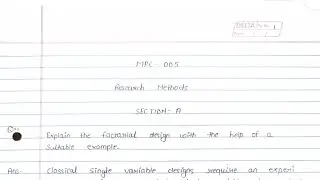 MPC-005
Research Methods
SECTION-A
Explain the factorial design with the help of a
suitable example.
Ans- Classical single variable designs require an experi